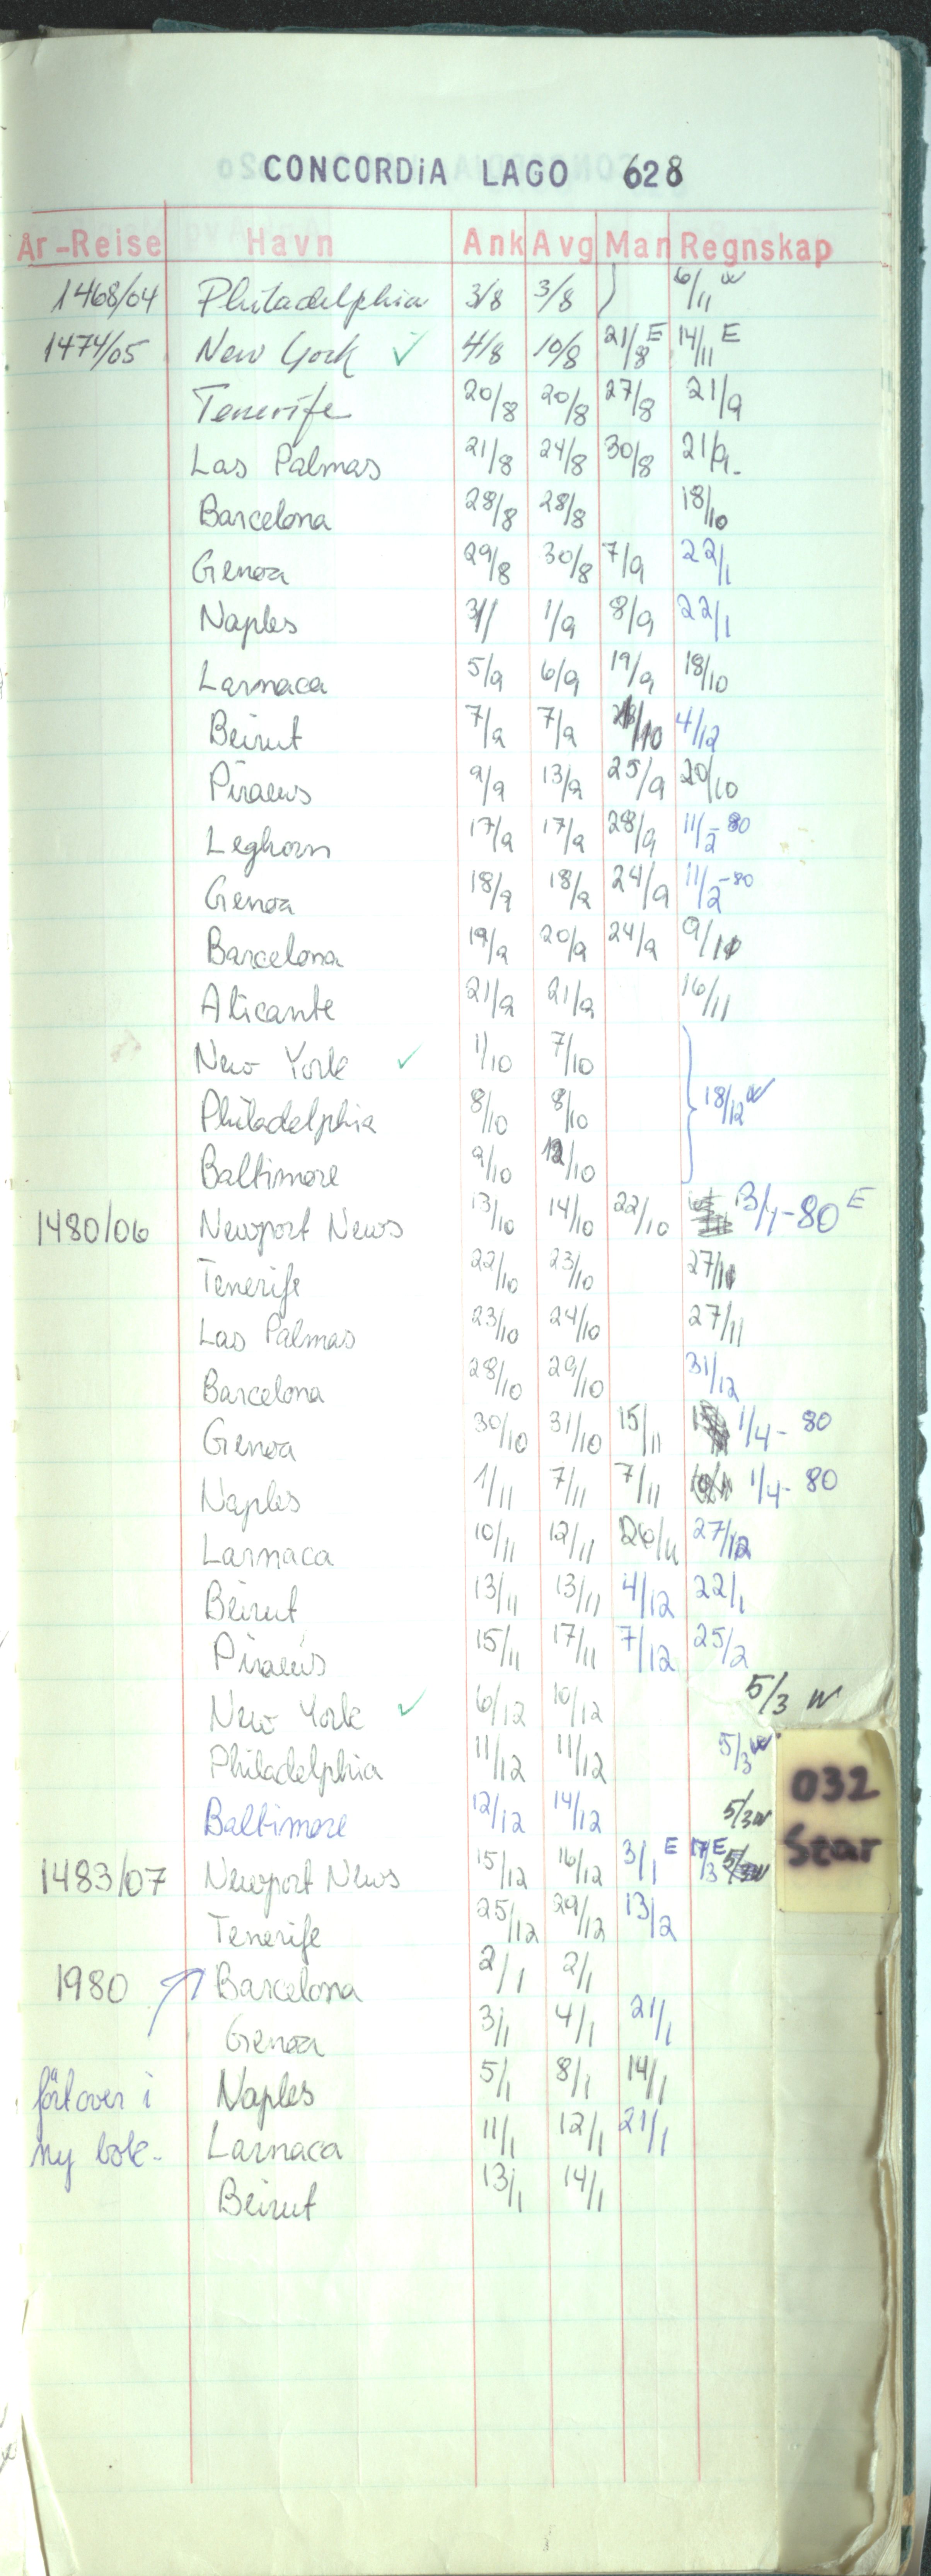 CONCORDiA LAGO 628
År-Reise Havn Ank Avg Man Regnskap
1468/04 Philadelphia 3/8 3/8 ) 6/11 W
1474/05 New York ✓ 4/8 10/8 21/8 E 14/11 E
Tenerife 20/8 20/8 27/8 21/9
Las Palmas 21/8 24/8 30/8 21/9-
Barcelona 28/8 28/8 18/10
Genoa 29/8 30/8 7/9 22/1
Naples 31/ 1/9 8/9 22/1
Larnaca 5/9 6/9 19/9 18/10
Beirut 7/9 7/9 4/12
Piraeus 9/9 13/9 25/9 20/10
Leghorn 17/9 17/9 28/9 11/2-80
Genoa 18/9 18/9 24/9 11/2-80
Barcelona 19/9 20/9 24/9 9/10
Alicante 21/9 21/9 16/11
New York ✓ 1/10 7/10
Philadelphia 8/10 8/10 } 18/12 W
Baltimore 9/10 12/10
1480/06 Newport News 13/10 14/10 22/10 13/1-80 E
Tenerife 22/10 23/10 27/11
Las Palmas 23/10 24/10 27/11
Barcelona 28/10 29/10 31/12
Genoa 30/10 31/10 15/11 1/4-80
Naples 1/11 7/11 7/11 1/4-80
Larnaca 10/11 12/11 26/11 27/12
Beirut 13/11 13/11 4/12 22/1
Piraeus 15/11 17/11 7/12 25/2
New York ✓ 6/12 10/12 5/3 W
Philadelphia 11/12 11/12 5/3 W
Baltimore 12/12 14/12 5/3 W
032
Star
1483/07 Newport News 15/12 16/12 3/1 E 17/3 E
Tenerife 25/12 29/12 13/2
1980 Barcelona 2/1 2/1
Genoa 3/1 4/1 21/1
Naples 5/1 8/1 14/1
Larnaca 11/1 12/1 21/1
Beirut 13/1 14/1
ført over i
ny bok-